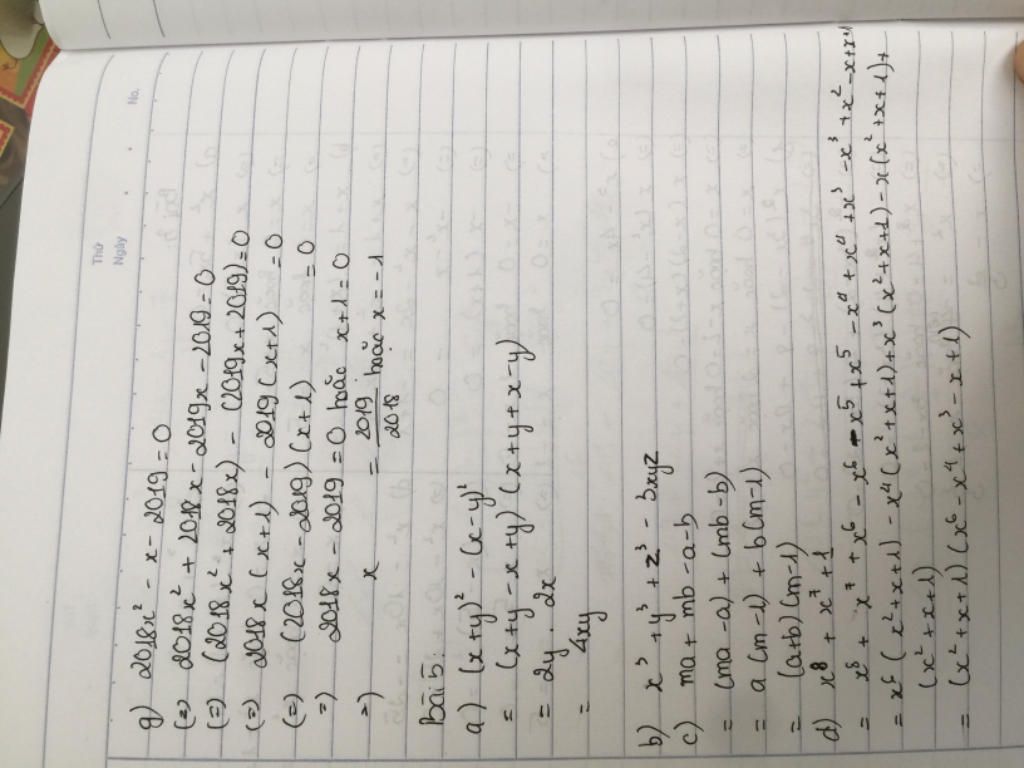 Thứ
Ngày
No.
g) 2018x² - x - 2019 = 0
(=) 2018x² + 2018x - 2019x - 2019 = 0
(=) (2018x² + 2018x) - (2019x + 2019) = 0
(=) 2018x (x+1) - 2019 (x+1) = 0
(=) (2018x - 2019) (x+1) = 0
=) 2018x - 2019 = 0 hoặc x+1 = 0
=) x = 2019/2018 hoặc x = -1
Bài 5:
a) (x+y)² - (x-y)²
= (x+y - x+y) (x+y+x-y)
= 2y . 2x
= 4xy
b) x³ + y³ + z³ - 3xyz
c) ma + mb - a - b
= (ma - a) + (mb - b)
= a (m-1) + b(m-1)
= (a+b)(m-1)
d) x⁸ + x⁷ + 1
= x⁸ + x⁷ + x⁶ - x⁶ - x⁵ + x⁵ - x⁴ + x⁴ + x³ - x³ + x² - x + x + 1
= x⁶ (x² + x + 1) - x⁴ (x² + x + 1) + x³ (x² + x + 1) - x (x² + x + 1) +
(x² + x + 1)
= (x² + x + 1) (x⁶ - x⁴ + x³ - x + 1)